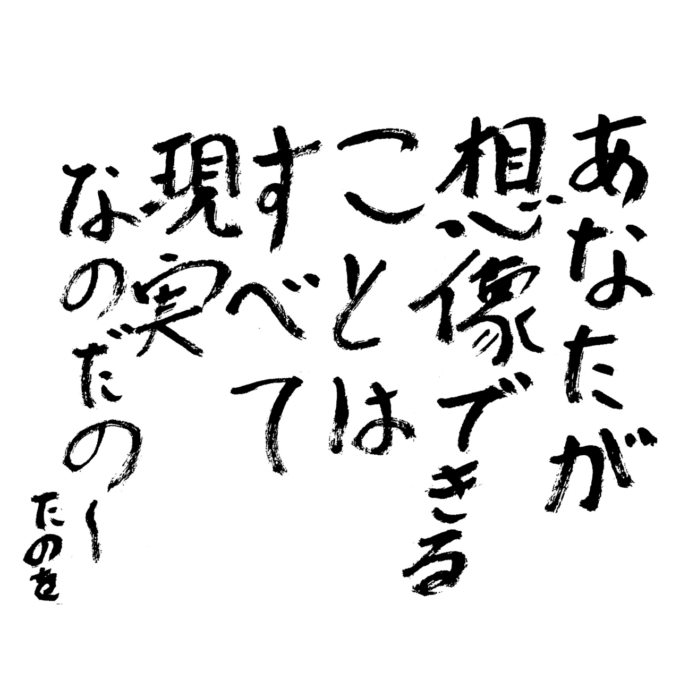 あなたが
想像できる
ことは
すべて
現実
なのだのー
たのを